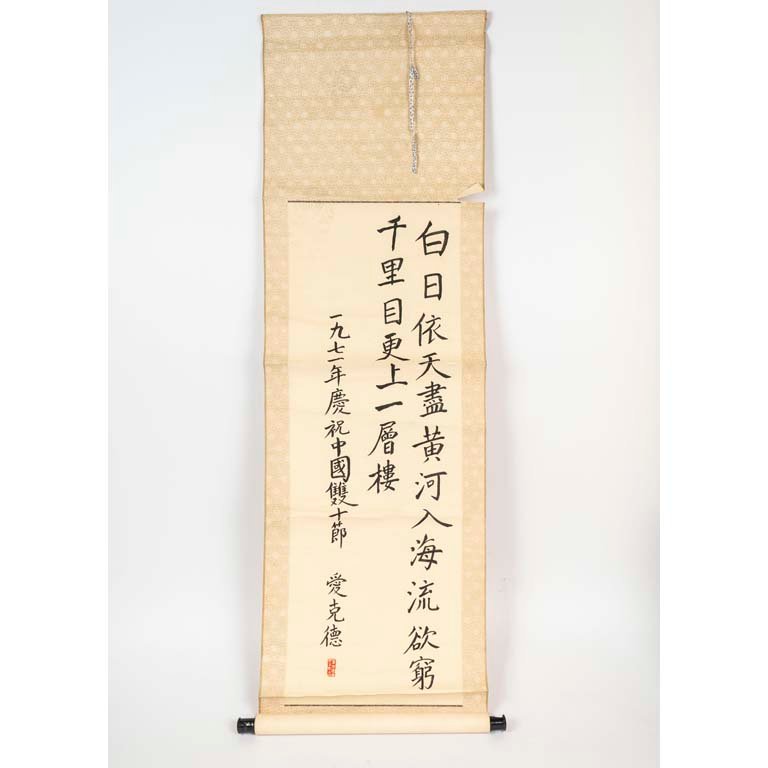 白日依天盡黃河入海流欲窮
千里目更上一層樓
一九七一年慶祝中國雙十節 愛克德